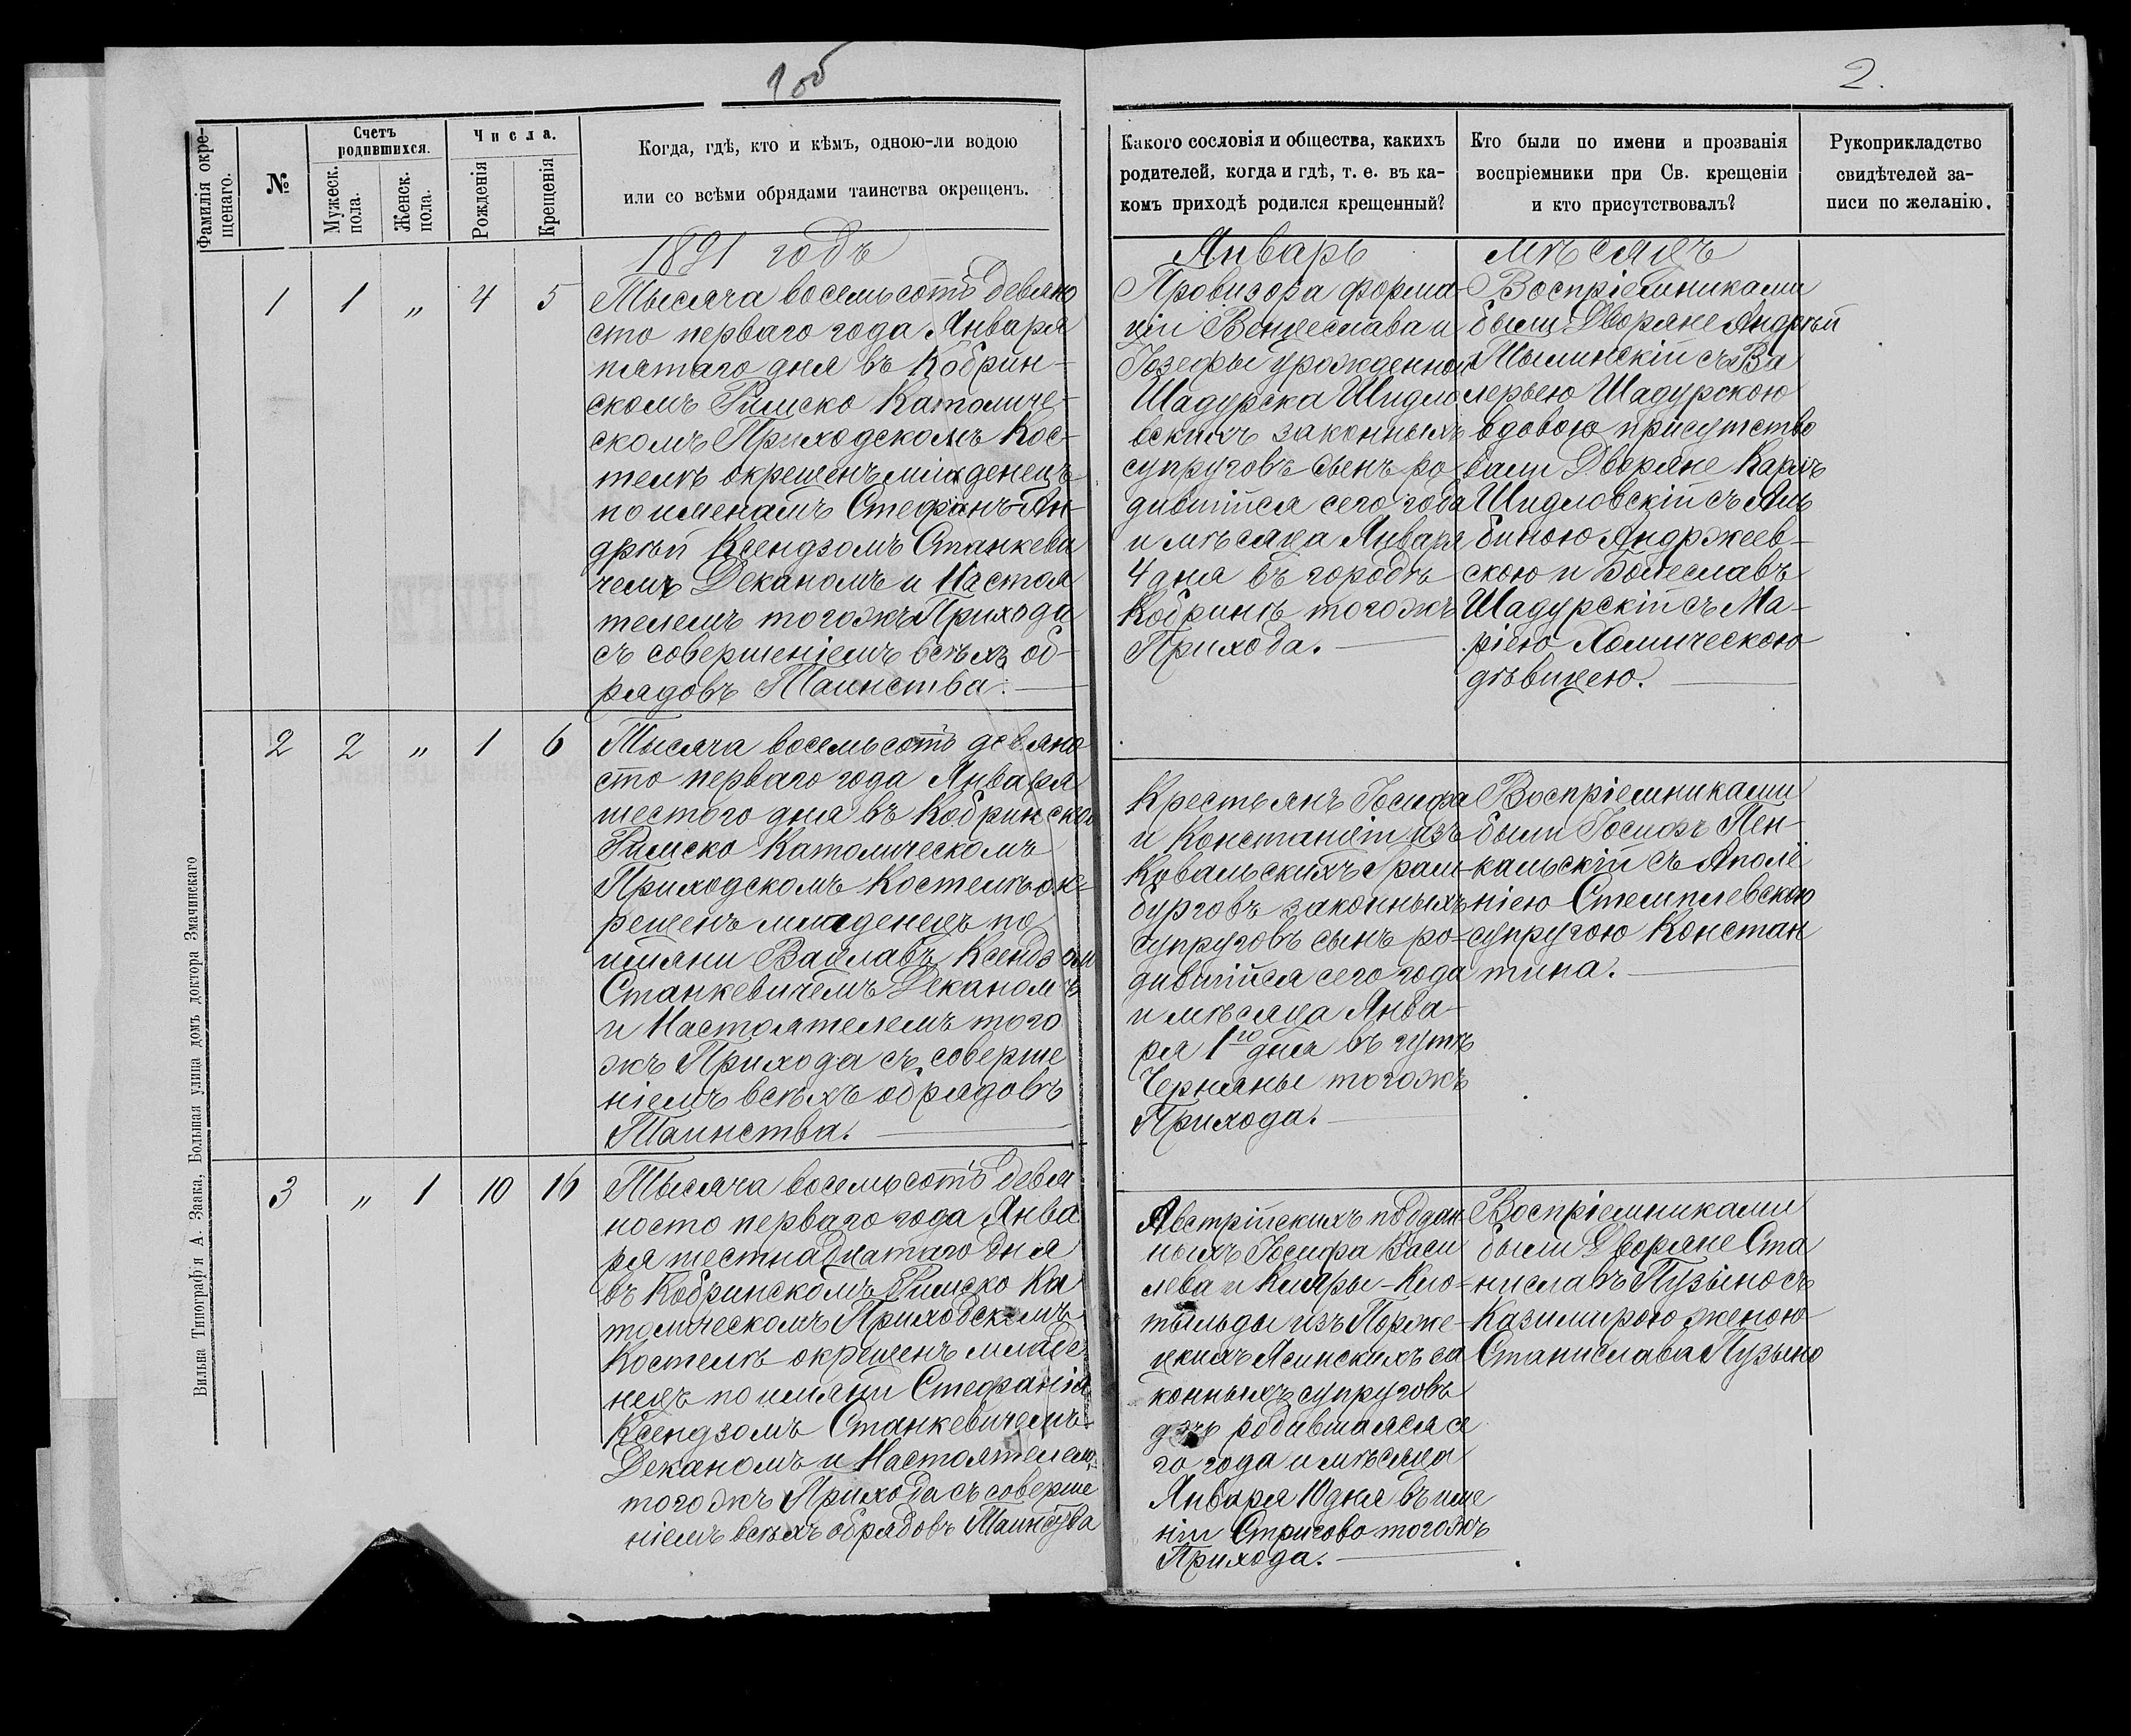 1об
2.
Фамилія окре-
щенаго.
№
Счетъ
родившихся.
Мужеск.
пола.
Женск.
пола.
Числа.
Рожденія
Крещенія
Когда, гдѣ, кто и кѣмъ, одною-ли водою
или со всѣми обрядами таинства окрещенъ.
Какого сословія и общества, какихъ
родителей, когда и гдѣ, т. е. въ ка-
комъ приходѣ родился крещенный?
Кто были по имени и прозванія
воспріемники при Св. крещеніи
и кто присутствовалъ?
Рукоприкладство
свидѣтелей за-
писи по желанію.
1891 годъ
Январь
мѣсяцъ
1 1 „ 4 5
Тысяча восемьсотъ девяно
сто перваго года Января
пятаго дня въ Кобрин-
скомъ Римско Католиче-
скомъ Приходскомъ Кос-
телѣ окрещенъ младенецъ
по именамъ Стефанъ-Ан-
дрѣй Ксендзомъ Станкеви
чемъ Деканомъ и Настоя
телемъ тогожъ Прихода
съ совершеніемъ всѣхъ об-
рядовъ Таинства.
Провизора форма-
ціи Венцеслава и
Іозефы урожденной
Шадурска Шидло
вскихъ законныхъ
супруговъ сынъ ро
дившійся сего года
и мѣсяца Января
4 дня въ городѣ
Кобринѣ тогожъ
Прихода.
Воспріемниками
были Дворяне Андрѣй
Тылинскій съ Ва
лерьею Шадурскою
вдовою присутство
вали Дворяне Карлъ
Шидловскій съ Аль
биною Анджеев-
скою и Болеславъ
Шадурскій съ Ма-
ріею Холмическою
дѣвицею.
2 2 „ 1 6
Тысяча восемьсотъ девяно
сто перваго года Января
шестого дня въ Кобринском
Римско Католическомъ
Приходскомъ Костелѣ ок-
рещенъ младенецъ по
имяни Вацлавъ Ксендзом
Станкевичемъ Деканомъ
и Настоятелемъ того
жъ Прихода съ соверше
ніемъ всѣхъ обрядовъ
Таинства.
Крестьянъ Іосифа
и Констанціи изъ
Ковальскихъ Грам-
бурговъ законныхъ
супруговъ сынъ ро-
дившійся сего года
и мѣсяца Янва-
ря 1го дня въ гутѣ
Черняны тогожъ
Прихода.
Воспріемниками
были Іосифъ Пен-
кальскій съ Аполё
ніею Стемплевскою
супругою Констан
тина.
3 „ 1 10 16
Тысяча восемьсотъ девя
носто перваго года Янва
ря шестнадцатаго дня
въ Кобринскомъ Римско Ка
толическомъ Приходскомъ
Костелѣ окрещенъ младе
нецъ по имяни Стефанія
Ксендзомъ Станкевичемъ
Деканомъ и Настоятелем
тогожъ Прихода съ соверше
ніемъ всѣхъ обрядовъ Таинства
Австрійскихъ поддан
ныхъ Іосифа Васи
лева и Кляры-Кло-
тыльды изъ Порже-
цкихъ Ясинскихъ за
конныхъ супруговъ
дчь родившаяся се
го года и мѣсяца
Января 10 дня въ име
ніи Стригово тогожъ
Прихода.
Воспріемниками
были Дворяне Ста
ниславъ Пузыно съ
Казимирою женою
Станислава Пузыно
Вильна Типографія А. Заака, Большая улица домъ доктора Змачинскаго